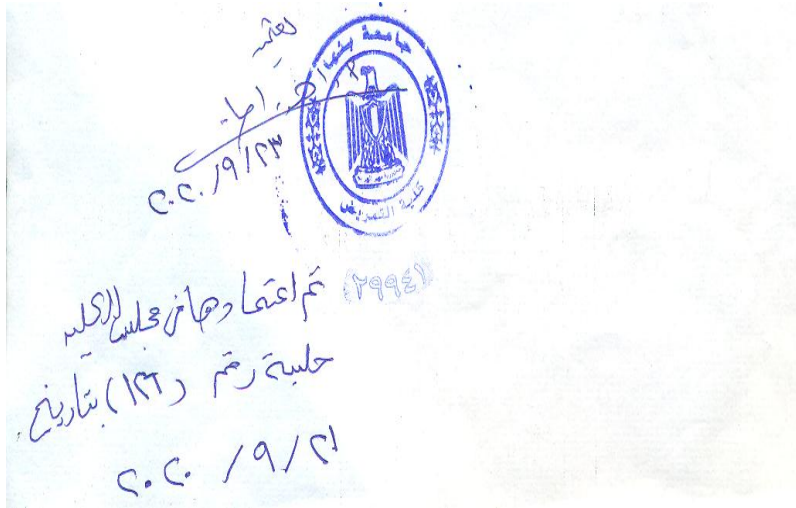 يعتمد
٢٠٢٠/٩/٢٣
جامعة بنها
كلية التمريض
(٢٩٩٤١)
تم اعتمادها من مجلس الكلية
جلسة رقم (١٢٦) بتاريخ
٢٠٢٠/٩/٢١